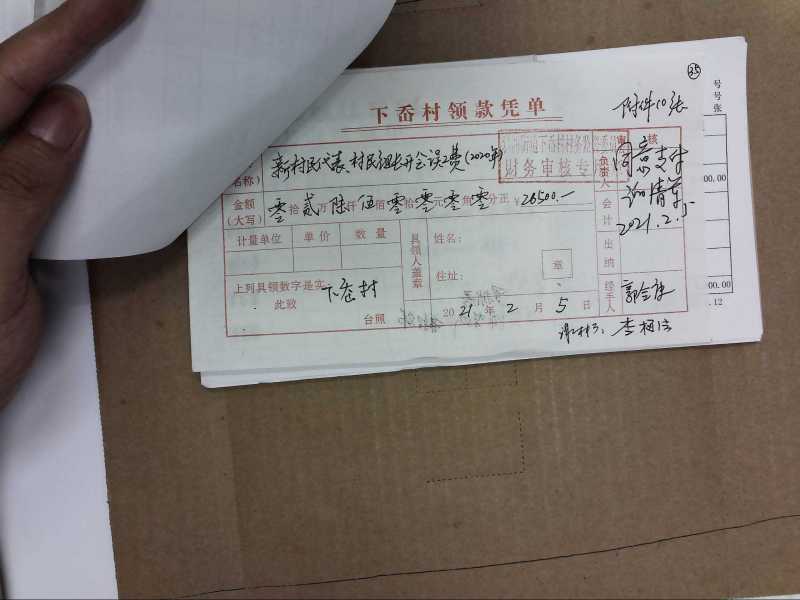 35
下岙村领款凭单
附件10张
号
号
张
名称）
新村民代表、村民组长开会误工费（2020年）
下岙村村务
财务审核专
审核
负责人
同意支付
2021.2.5
金额
（大写）
零拾贰万陆仟伍佰零拾零元零角零分正 ¥26500.—
00.00
计量单位 单价 数量
具领人盖章
姓名：
住址：
章
会计
出纳
上列具领数字是实
此致
下岙村
台照
2021年2月5日
经手人
000.00
.12